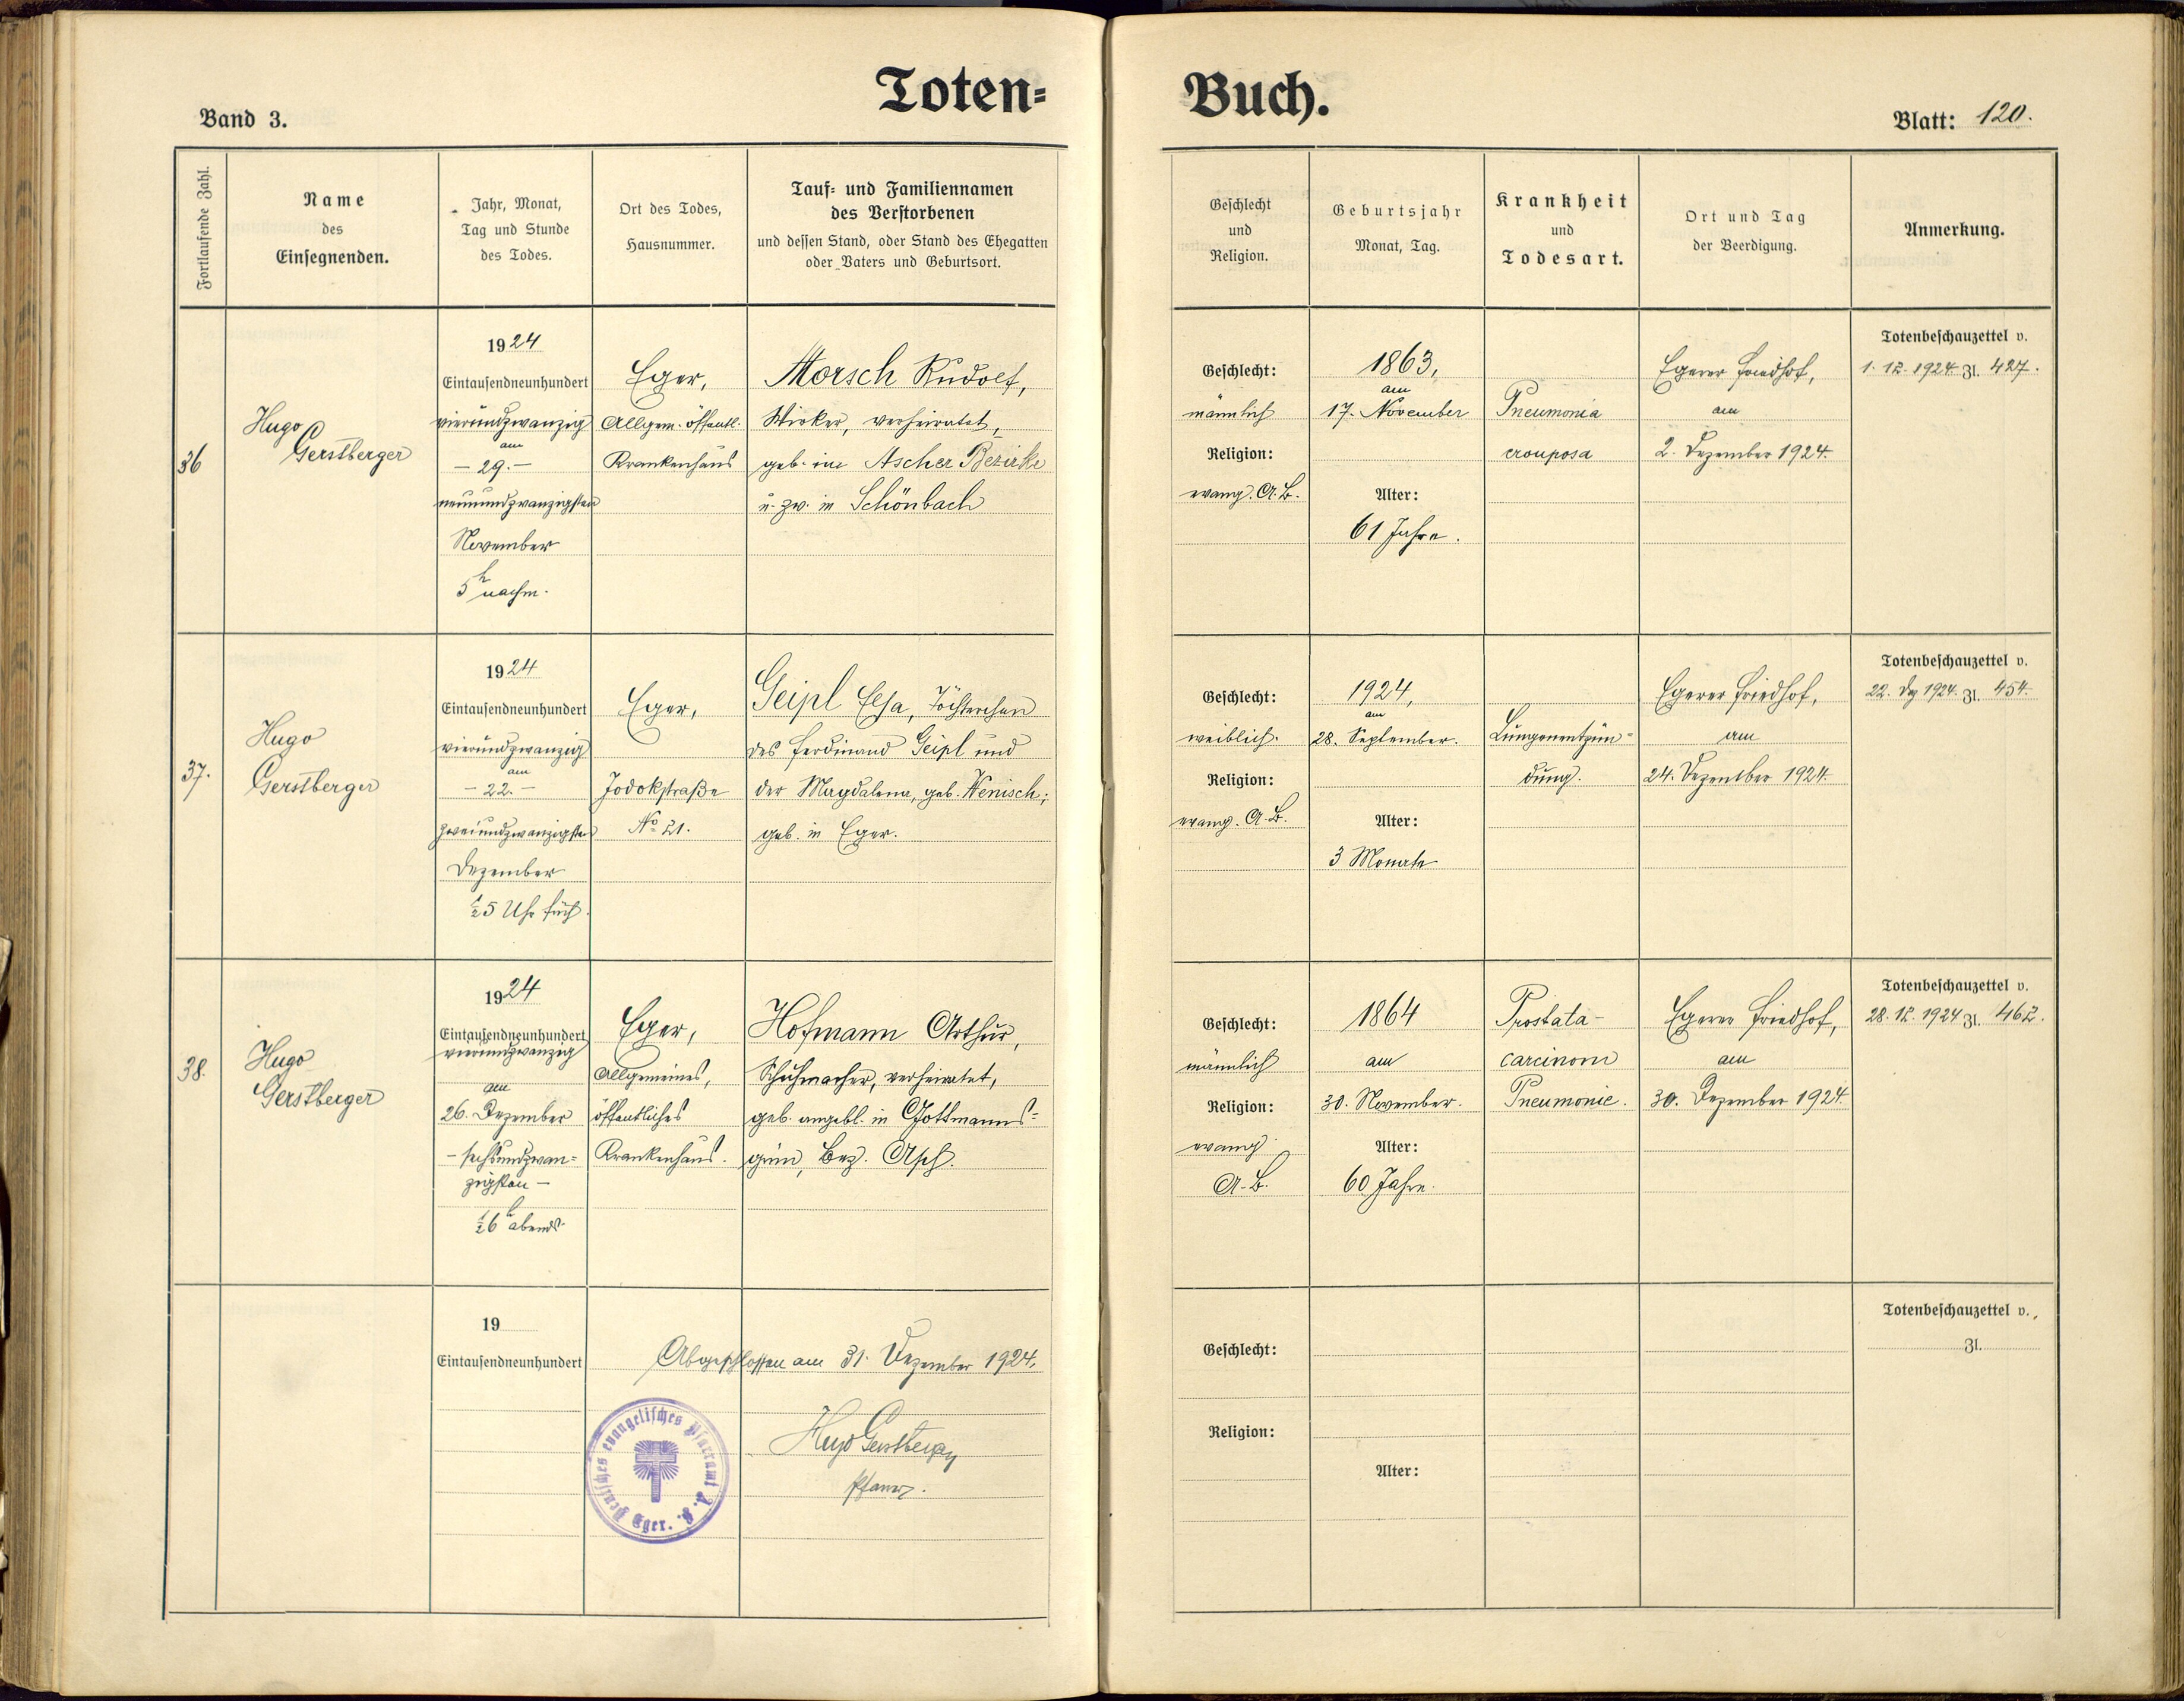 Toten=
Buch.
Band 3.
Blatt: 120.
Fortlaufende Zahl.
Name
des
Einsegnenden.
Jahr, Monat,
Tag und Stunde
des Todes.
Ort des Todes,
Hausnummer.
Tauf= und Familiennamen
des Verstorbenen
und dessen Stand, oder Stand des Ehegatten
oder Vaters und Geburtsort.
Geschlecht
und
Religion.
Geburtsjahr
Monat, Tag.
Krankheit
und
Todesart.
Ort und Tag
der Beerdigung.
Anmerkung.
36
Hugo
Gerstberger
1924
Eintausendneunhundert
vierundzwanzig
am
– 29. –
neunundzwanzigsten
November
5h nachm.
Eger,
Allgem. öffentl.
Krankenhaus
Morsch Rudolf,
Wirker, verheiratet,
geb. im Ascher Bezirke
u. zw. in Schönbach
Geschlecht:
männlich
Religion:
evang. A. B.
1863,
am
17. November
Alter:
61 Jahre.
Pneumonia
crouposa
Egerer Friedhof,
am
2. Dezember 1924.
Totenbeschauzettel v.
1. 12. 1924 Zl. 427.
37.
Hugo
Gerstberger
1924
Eintausendneunhundert
vierundzwanzig
am
– 22. –
zweiundzwanzigsten
Dezember
½5 Uhr früh.
Eger,
Jodokstraße
No 21.
Geipl Elsa, Töchterchen
des Ferdinand Geipl und
der Magdalena, geb. Wenisch;
geb. in Eger.
Geschlecht:
weiblich.
Religion:
evang. A. B.
1924,
am
28. September.
Alter:
3 Monate
Lungenentzün=
dung.
Egerer Friedhof,
am
24. Dezember 1924.
Totenbeschauzettel v.
22. Dez 1924. Zl. 454.
38.
Hugo
Gerstberger
1924
Eintausendneunhundert
vierundzwanzig
am
26. Dezember
– sechsundzwan=
zigsten –
½6h abends.
Eger,
Allgemeines,
öffentliches
Krankenhaus.
Hofmann Arthur,
Schuhmacher, verheiratet,
geb. angebl. in Gottmanns=
grün, Bez. Asch.
Geschlecht:
männlich
Religion:
evang
A. B.
1864
am
30. November.
Alter:
60 Jahre.
Prostata-
carcinom
Pneumonie.
Egerer Friedhof,
am
30. Dezember 1924.
Totenbeschauzettel v.
28. 12. 1924 Zl. 462.
19
Eintausendneunhundert
Abgeschlossen am 31. Dezember 1924.
Hugo Gerstberger
Pfarrer.
Deutsches evangelisches Pfarramt A. B. Eger.
Geschlecht:
Religion:
Alter:
Totenbeschauzettel v.
Zl.